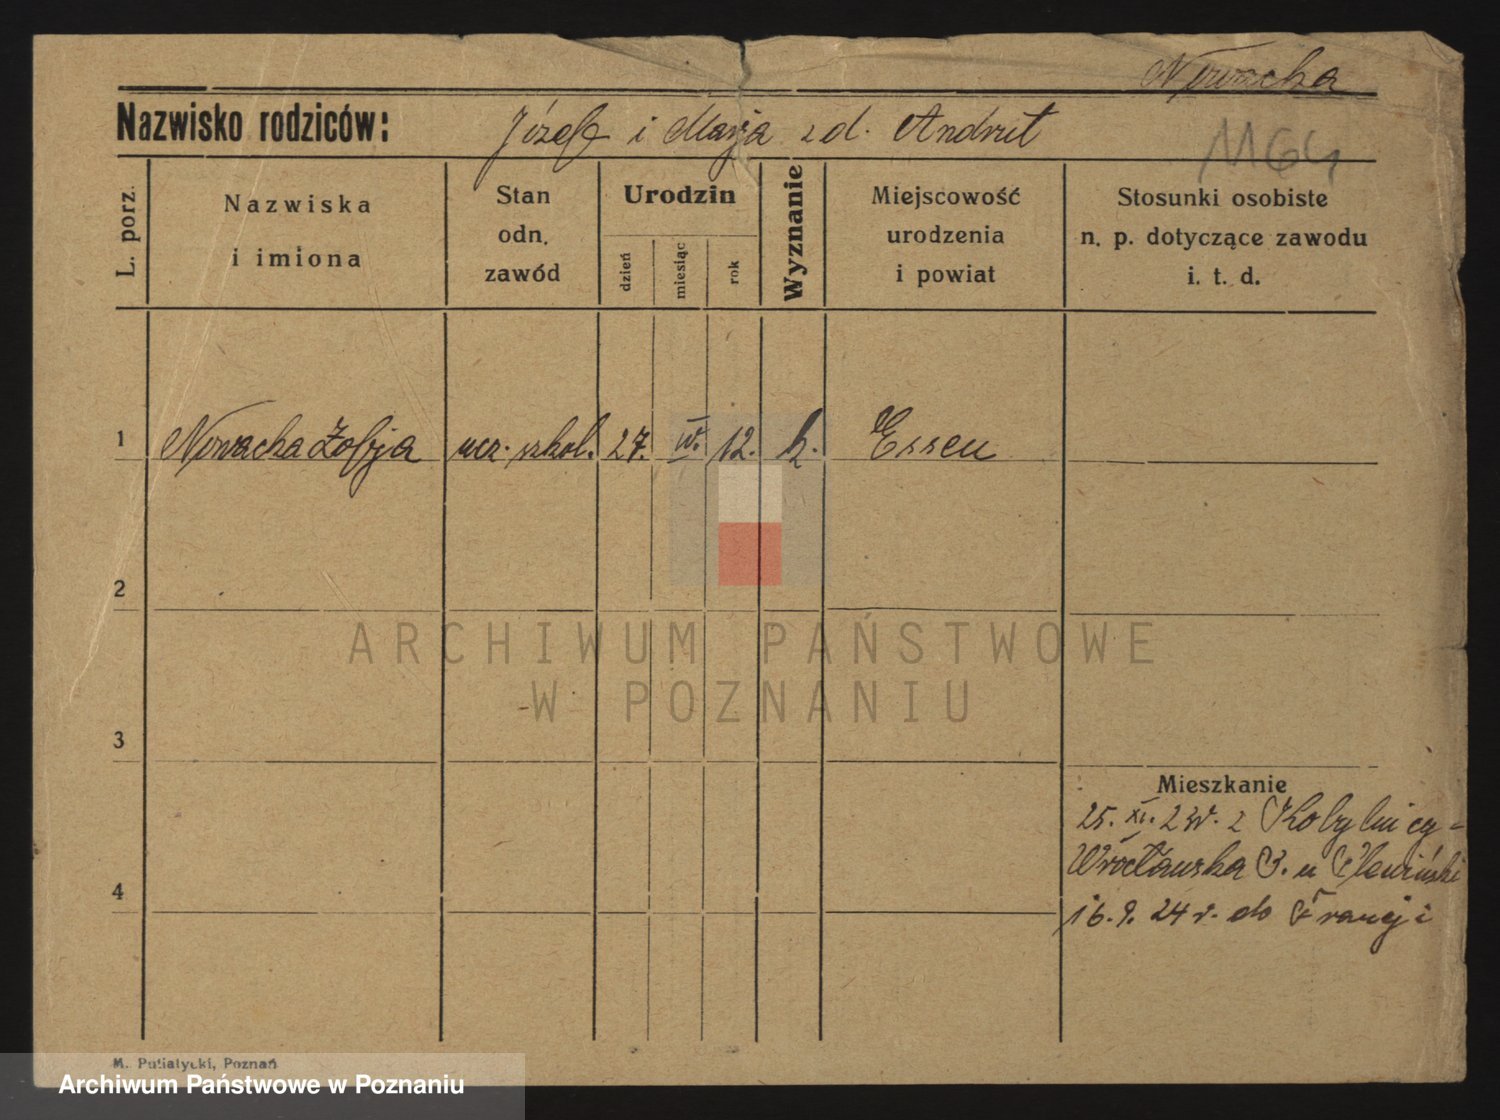 Nowacka
Nazwisko rodziców: Józef i Marja zd. Andrut
1164
L. porz.
Nazwiska
i imiona
Stan
odn.
zawód
Urodzin
dzień
miesiąc
rok
Wyznanie
Miejscowość
urodzenia
i powiat
Stosunki osobiste
n. p. dotyczące zawodu
i. t. d.
1 Nowacka Zofja ucz. szkol. 27. IV. 12. k. Essen
2
ARCHIWUM PAŃSTWOWE
W POZNANIU
3
Mieszkanie
25. XI. 23r. z Kobylnicy-
Wrocławska 3. u
4
16. 9. 24 r. do Francji
M. Putiatycki, Poznań
Archiwum Państwowe w Poznaniu